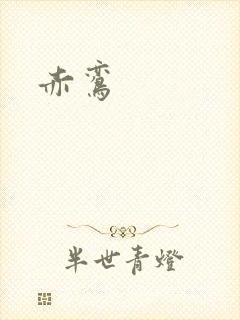 赤鸾
半世青燈